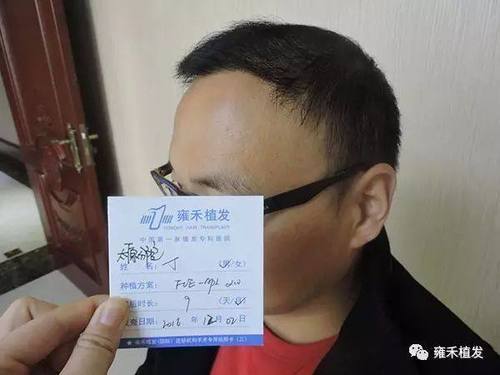 雍禾植发
YONGHE HAIR TRANSPLANT
中国第一家植发专科医院
太原分院
姓 名: 丁 (男/女)
种植方案: FUE
植后时长: 9 (天/月)
复查日期: 2016 年 12 月 02 日
雍禾植发